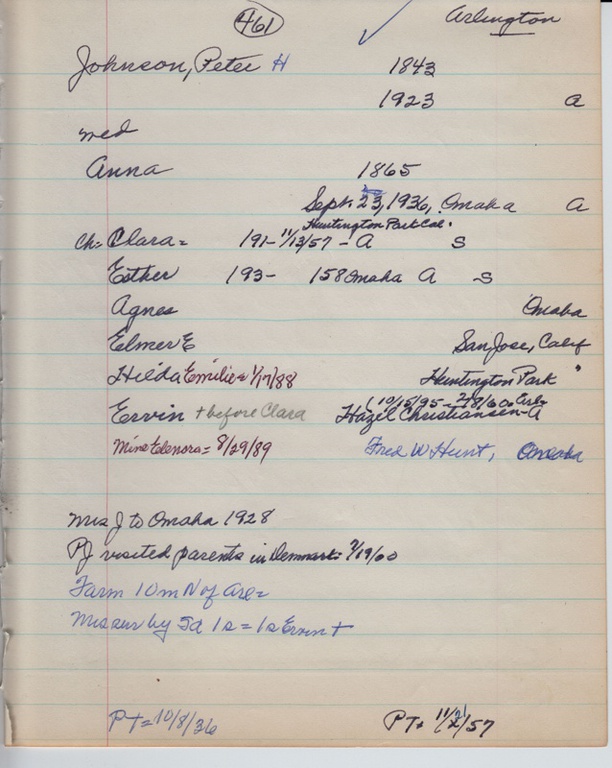 461 Arlington
Johnson, Peter H 1843
1923 A
med
Anna 1865
Sept. 23, 1936, Omaha A
Huntington Park Cal.
Ch- Clara= 191- 11/13/57 - A S
Esther 193- 158 Omaha A S
Agnes Omaha
Elmer E San Jose, Calif
Hilda Emilie= 1/17/88 Huntington Park
(10/15/95 - 2/8/60 Arl.
Ervin + before Clara Hazel Christiansen-A
Mine Elenora= 8/29/89 Fred W Hunt, Omaha
Mrs J to Omaha 1928
PJ visited parents in Denmark: 7/19/00
Farm 10 m N of Arl=
Mrs sur by 5d 1s = 1s Ervin +
PT=10/8/36 PT= 11/21/57